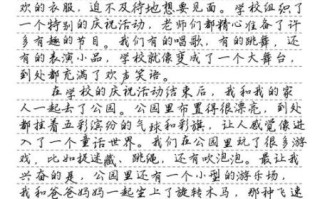 欢的衣服，迫不及待地想要见面。学校组织了
一个特别的庆祝活动，老师们都精心准备了许
多有趣的节目。我们有的唱歌，有的跳舞，还
有的表演小品，学校就像变成了一个大舞台，
到处都充满了欢声笑语。
在学校的庆祝活动结束后，我和我的家
人一起去了公园。公园里布置得很漂亮，到处
都挂着五彩缤纷的气球和彩旗，让人感觉像进
入了一个童话世界。我们在公园里玩了很多游
戏，比如捉迷藏、跳绳，还有吹泡泡。最让我
兴奋的是，公园里还有一个小型的游乐场，
我和爸爸妈妈一起坐上了旋转木马，那种飞速